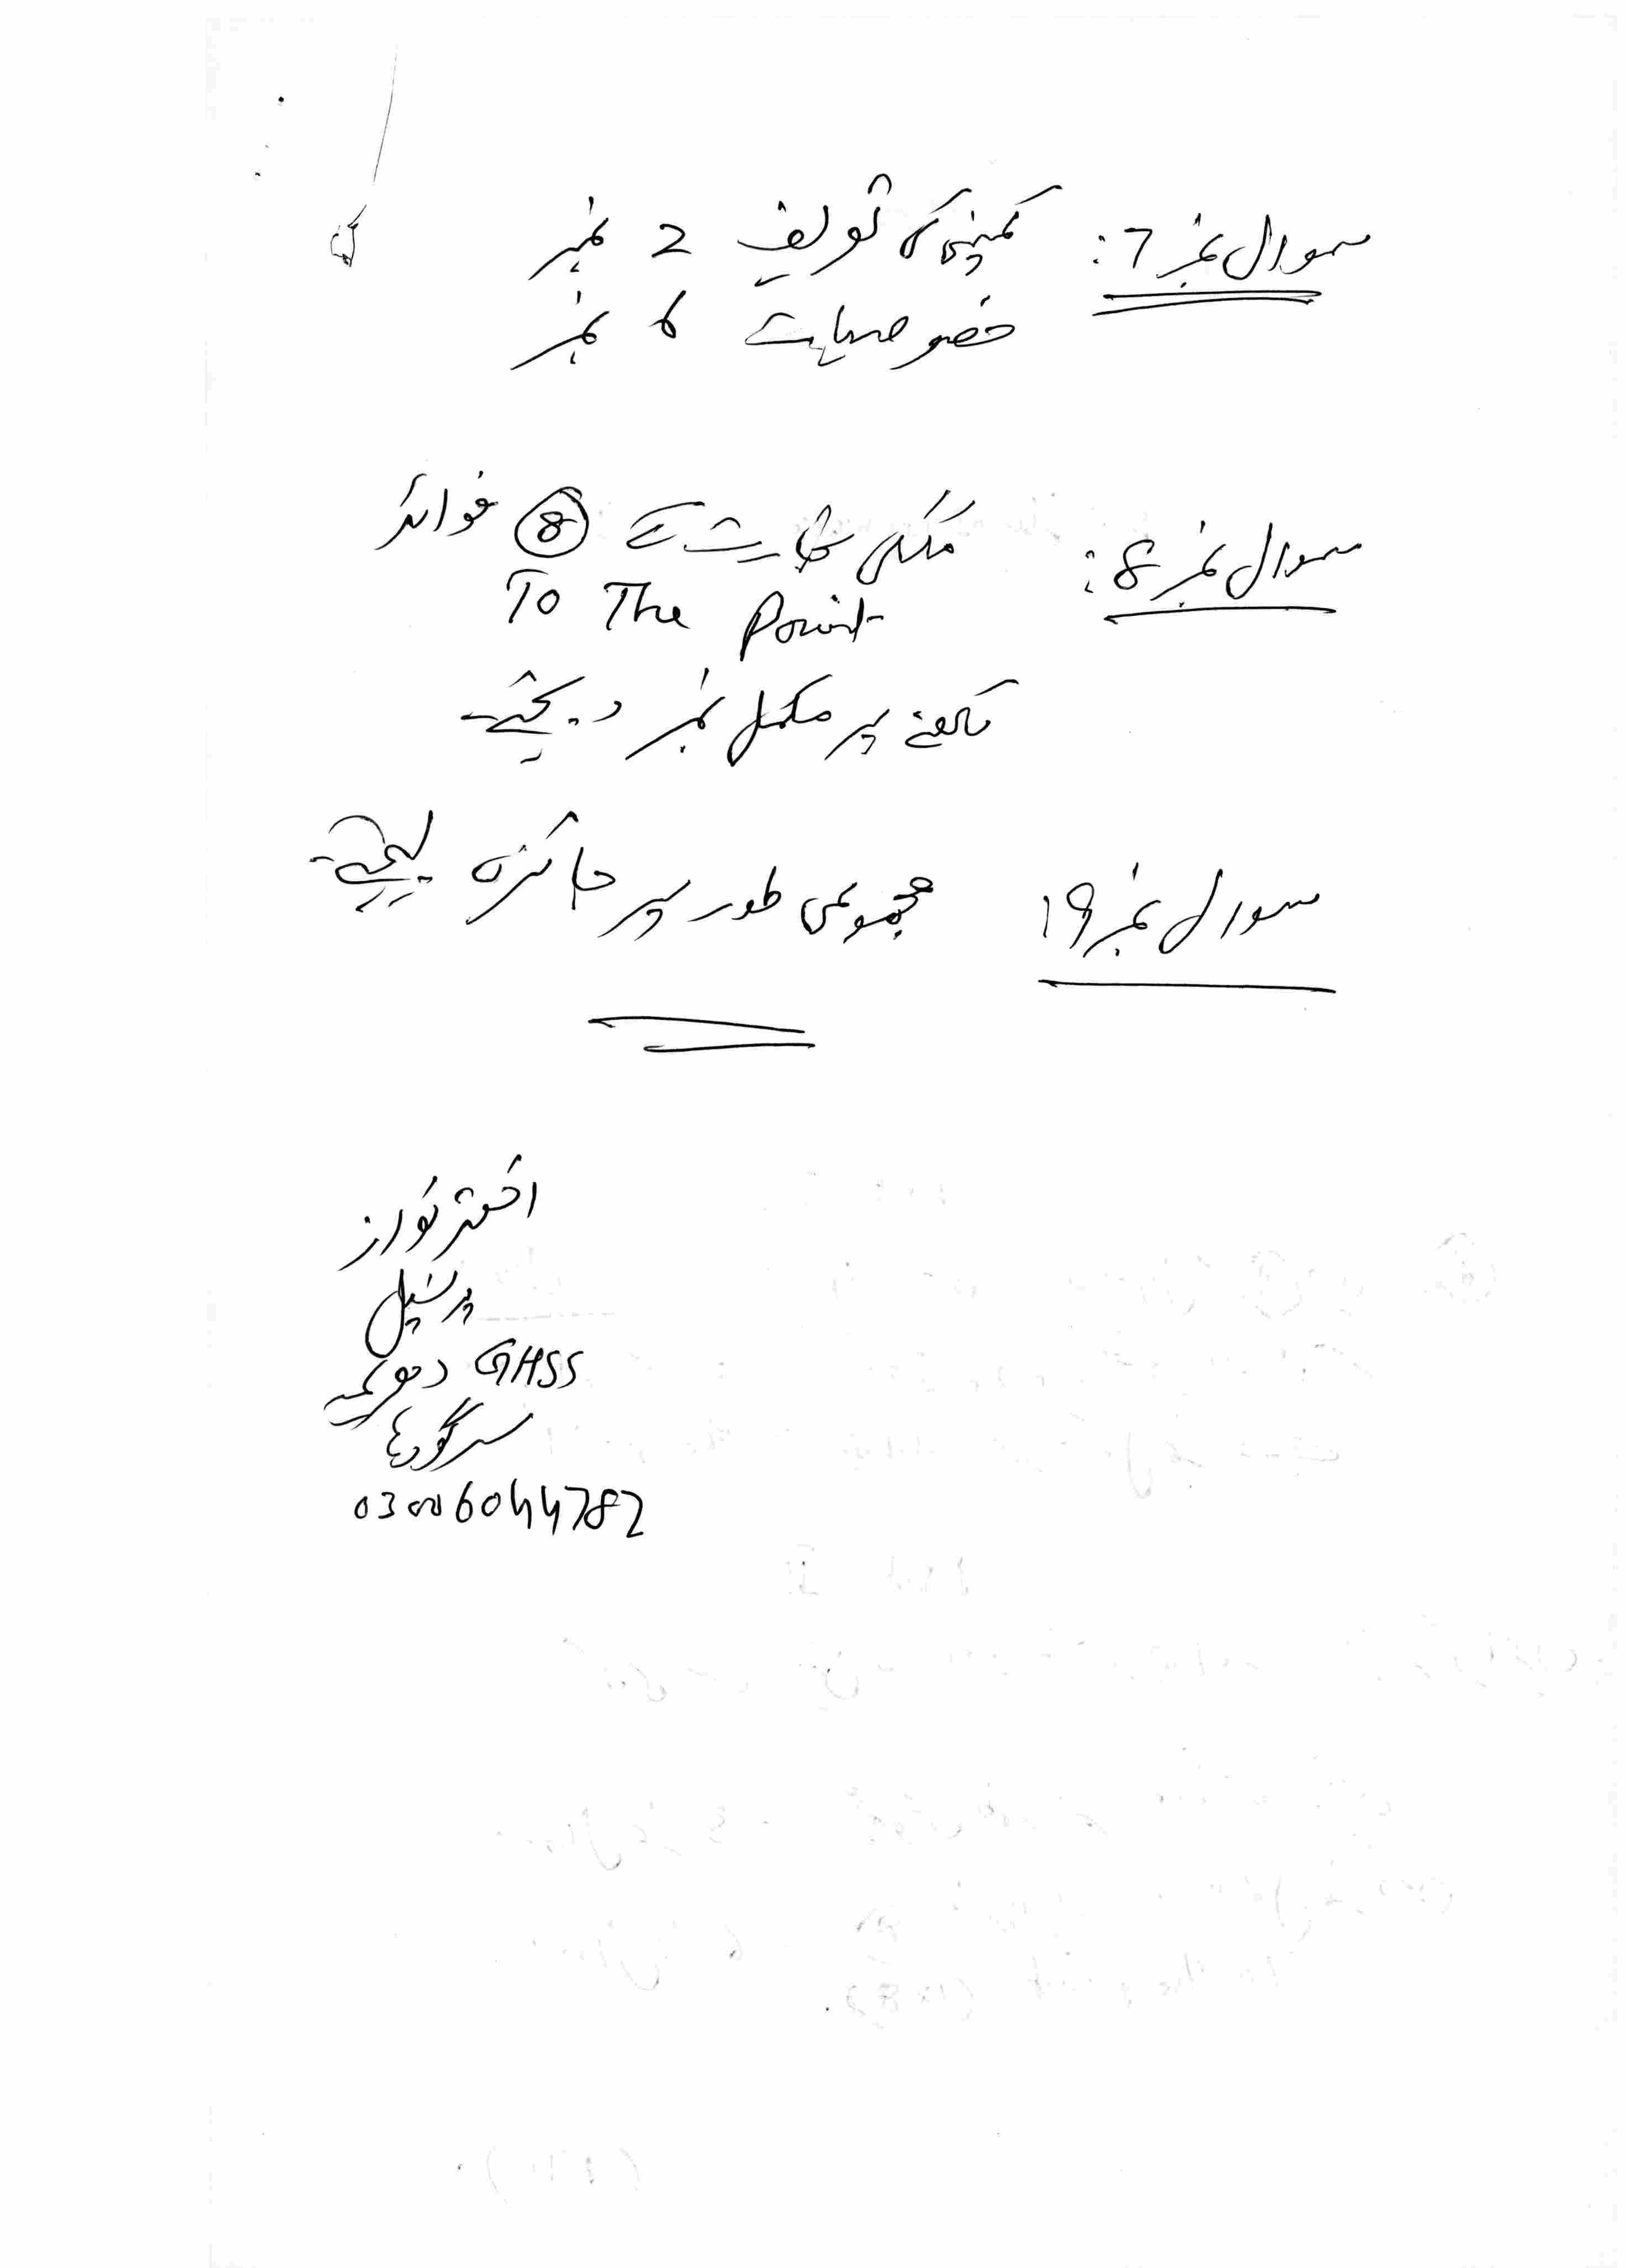 سوال نمبر 7: کمپنی کی تعریف 2 نمبر
خصوصیات 6 نمبر
سوال نمبر 8: ملکی تجارت کے 8 فوائد
To The Point
لکھنے پر مکمل نمبر دیجئے۔
سوال نمبر 9: مجموعی طور پر جائزہ لیجیے۔
اختر نواز
پرنسپل
GHSS
سرگودھا
03006044782